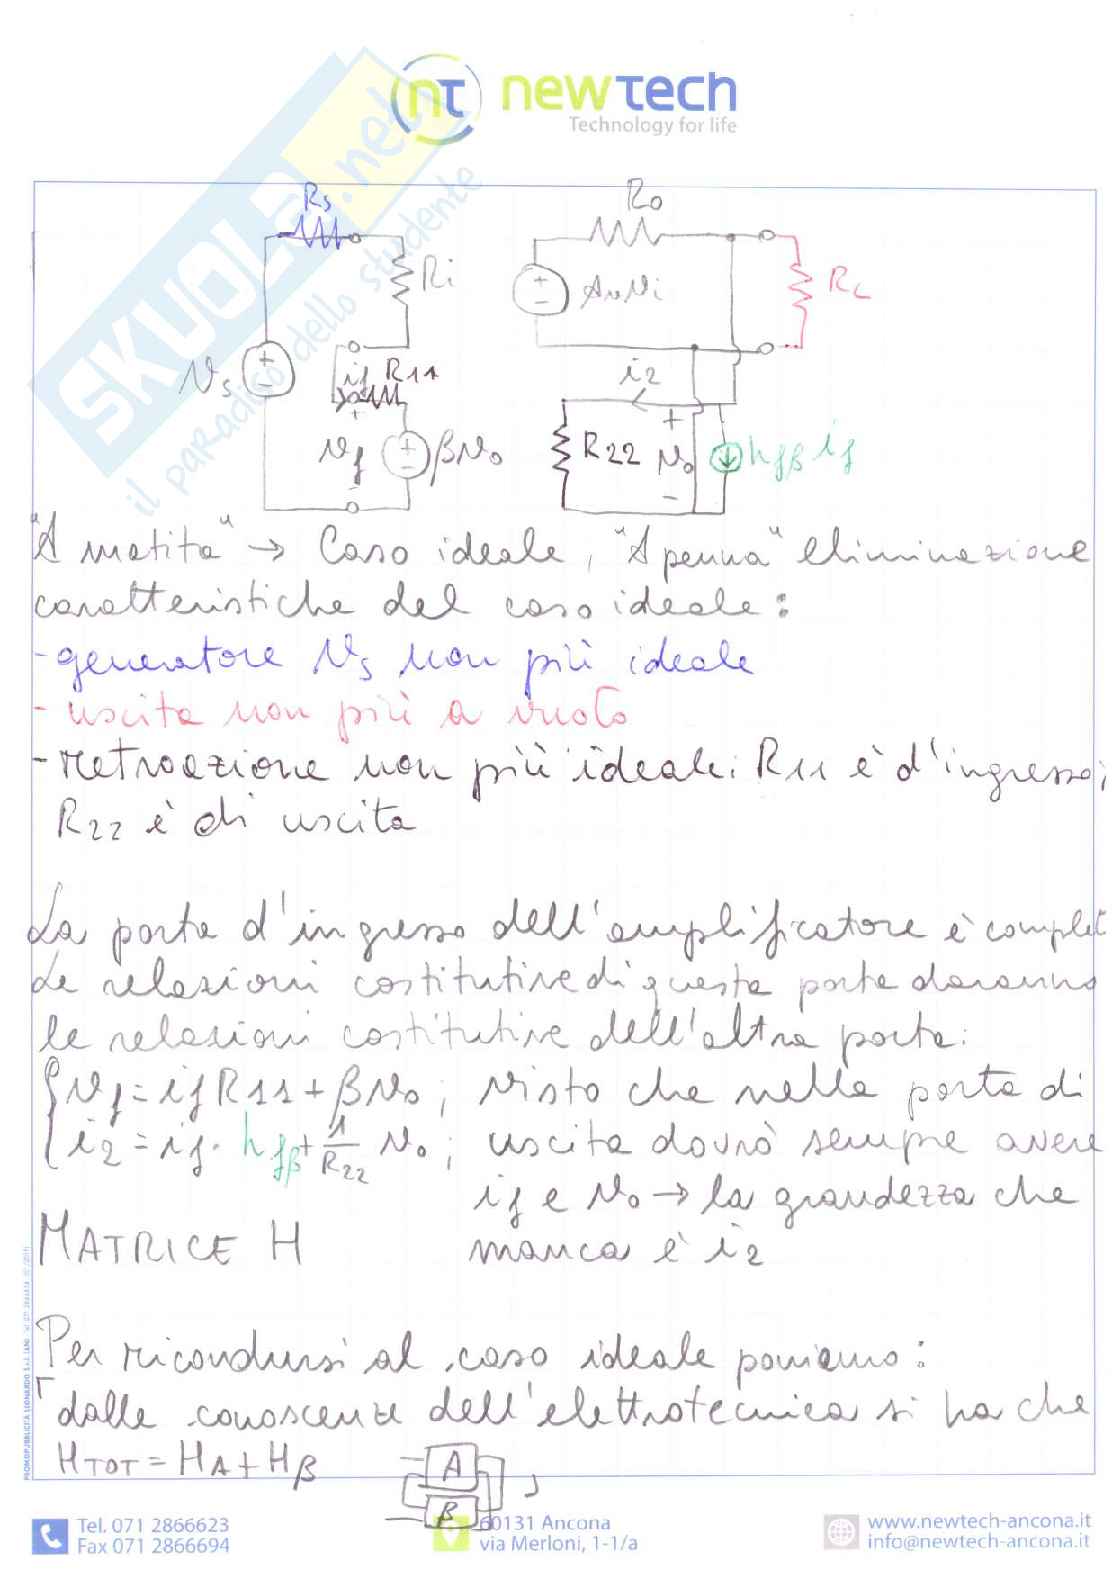 nt newtech
Technology for life
SKUOLA.net
il paradiso dello studente
Rs
Ro
Ri
AvVi
RL
Vs
if R11
i2
Vf
βvo
R22
vo
hfβ if
"A matita" → Caso ideale, "A penna" eliminazione
caratteristiche del caso ideale:
- generatore Vs non più ideale
- uscita non più a vuoto
- retroazione non più ideale: R11 è d'ingresso;
R22 è di uscita
La porta d'ingresso dell'amplificatore è complet
Le relazioni costitutive di questa porta daranno
le relazioni costitutive dell'altra porta:
{ vf = if R11 + βvo ; visto che nella porta di
i2 = if · hfβ + 1/R22 vo ; uscita dovrò sempre avere
if e vo → la grandezza che
MATRICE H manca è i2
Per ricondursi al caso ideale poniamo:
dalle conoscenze dell'elettrotecnica si ha che
HTOT = HA + Hβ
A
β
Tel. 071 2866623
Fax 071 2866694
60131 Ancona
via Merloni, 1-1/a
www.newtech-ancona.it
info@newtech-ancona.it